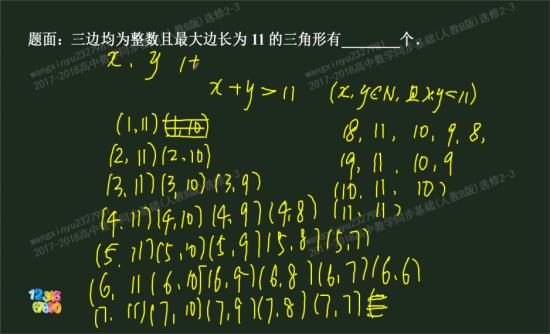 题面：三边均为整数且最大边长为 11 的三角形有________个．
x, y 11
x+y>11 (x,y∈N, 且x,y≤11)
(1,11)(1,10)
(2,11)(2,10)
(3,11)(3,10)(3,9)
(4,11)(4,10)(4,9)(4,8)
(5,11)(5,10)(5,9)(5,8)(5,7)
(6,11)(6,10)(6,9)(6,8)(6,7)(6,6)
(7,11)(7,10)(7,9)(7,8)(7,7)
(8, 11, 10, 9, 8,
(9, 11, 10, 9
(10, 11, 10)
(11, 11)
wangxinyu2327981
2017-2018高中数学同步基础(人教B版)选修2-3